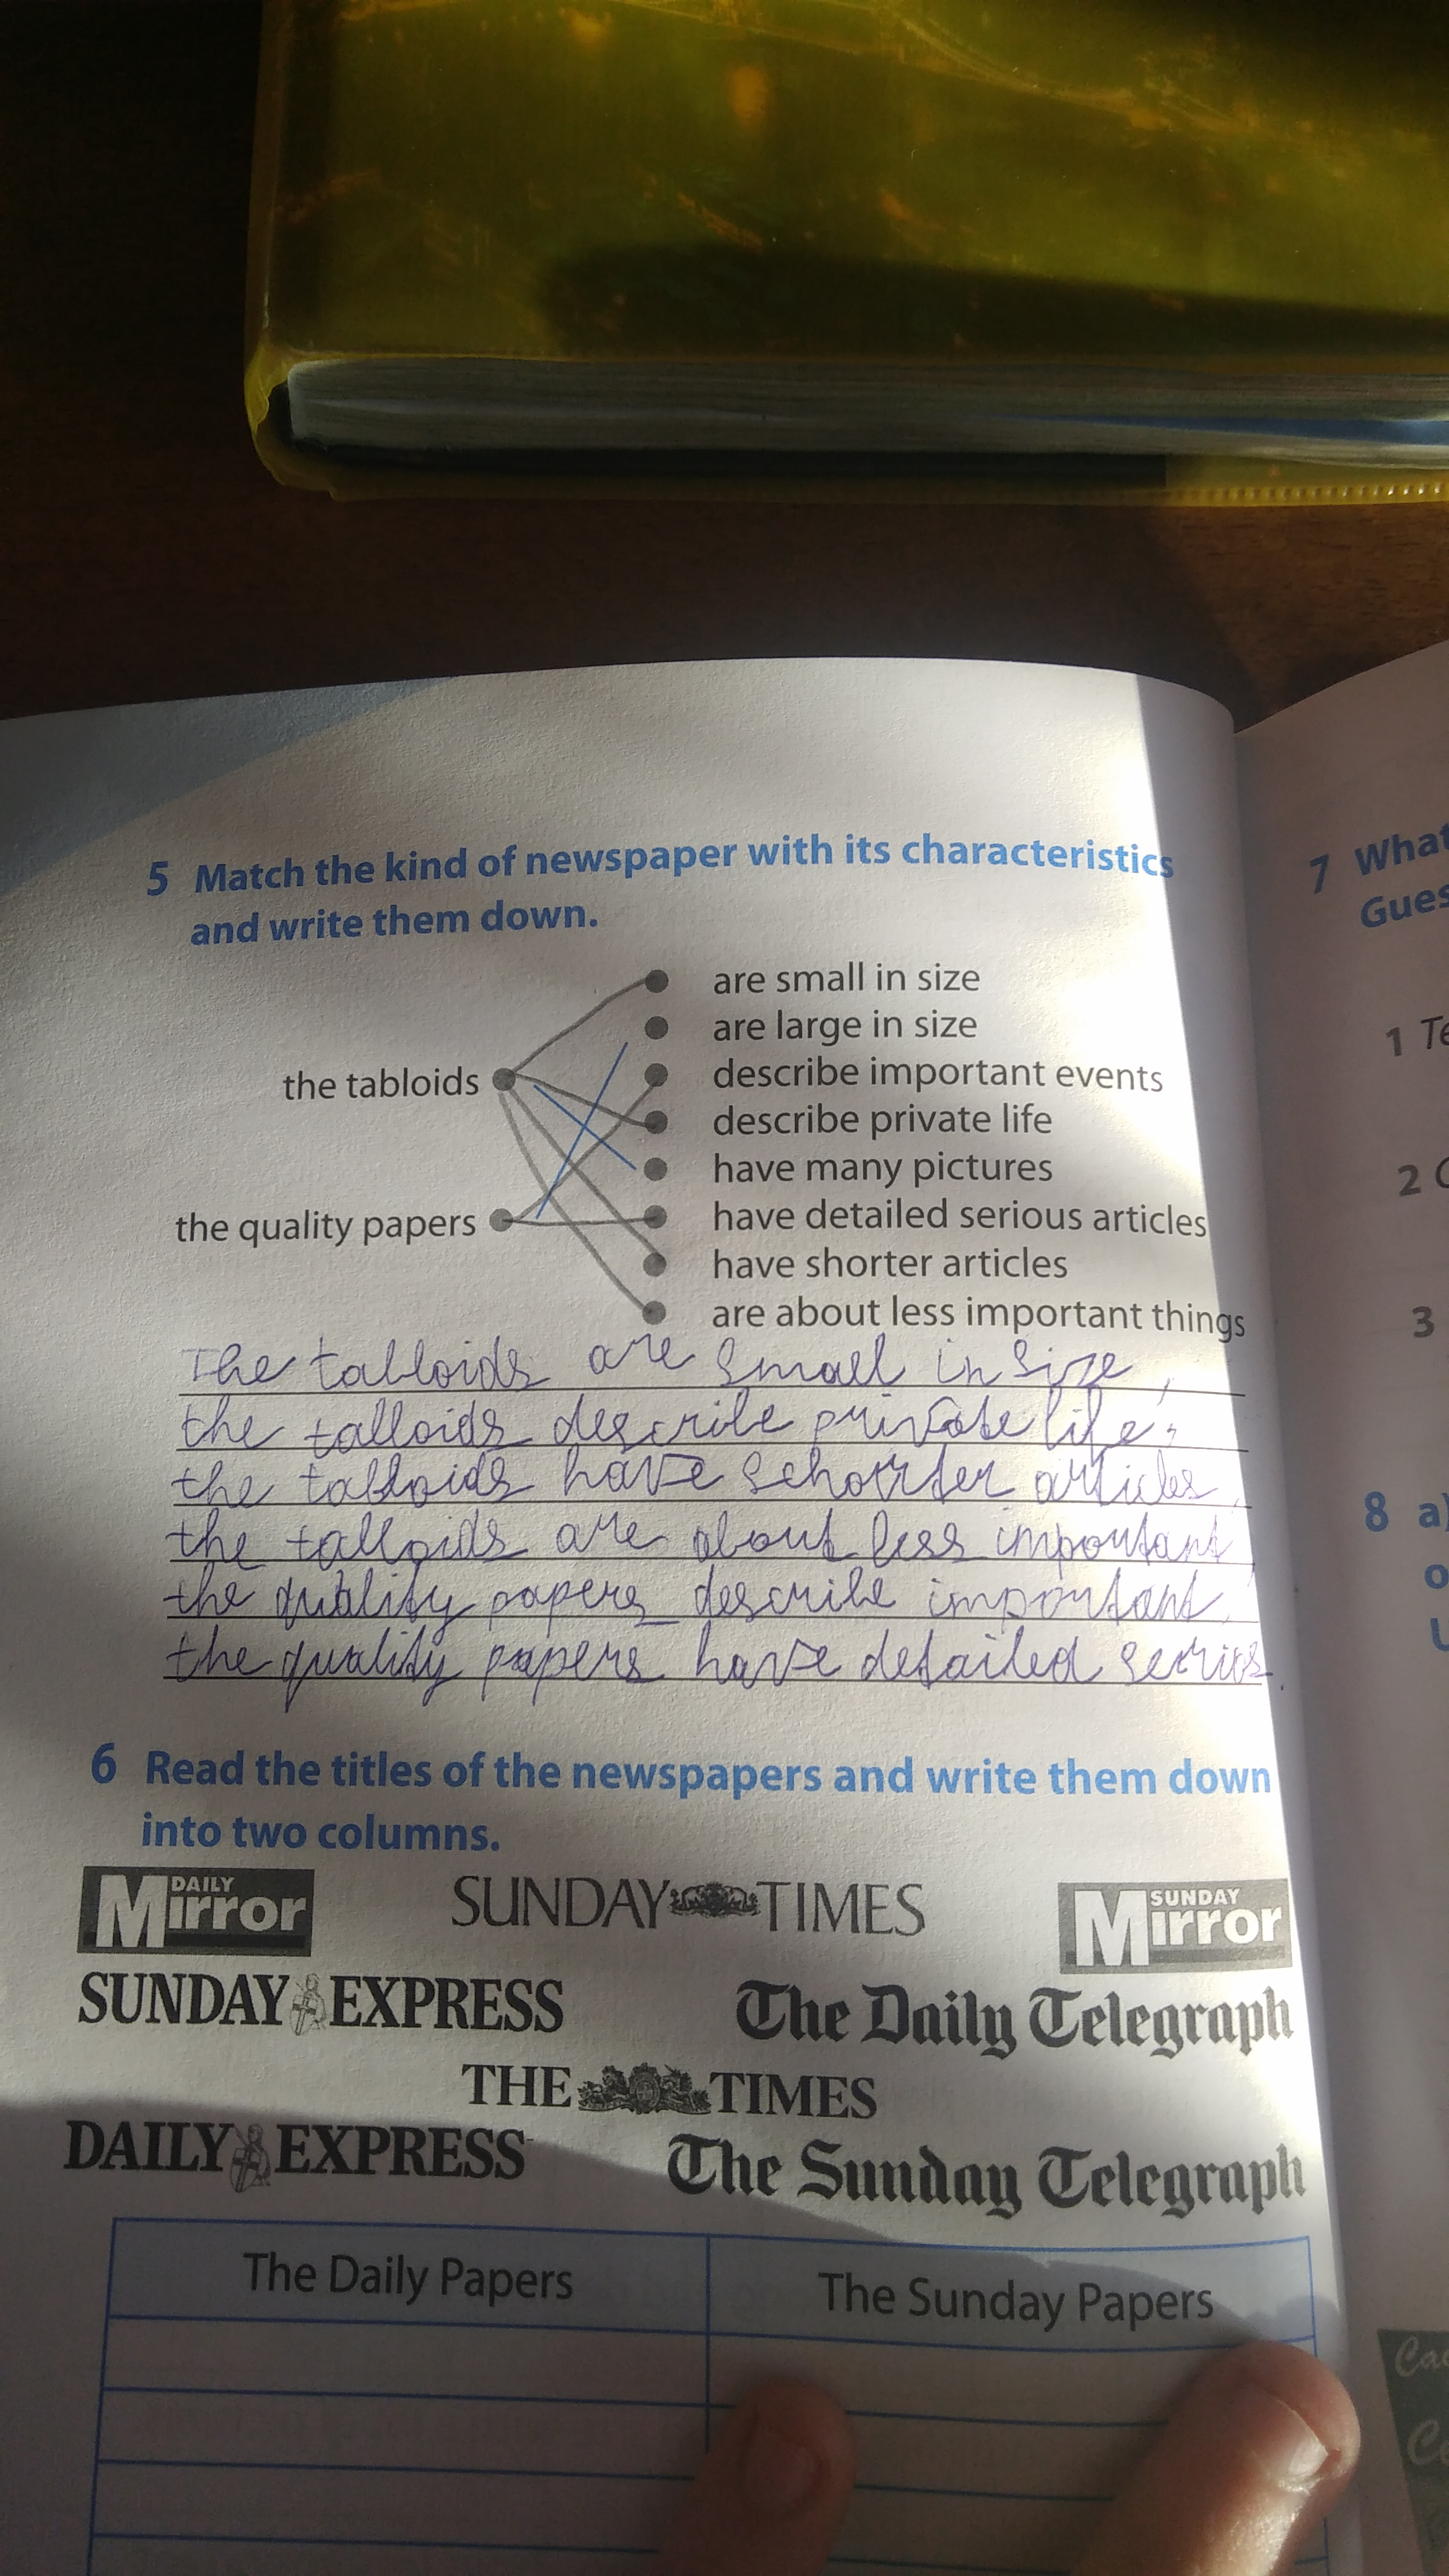 5 Match the kind of newspaper with its characteristics
and write them down.
are small in size
are large in size
the tabloids
describe important events
describe private life
have many pictures
the quality papers
have detailed serious articles
have shorter articles
are about less important things
The tabloids are small in size,
the talloids describe private life,
the tabloids have schorter articles,
the talloids are about less important,
the quality papers describe important,
the quality papers have detailed serios.
6 Read the titles of the newspapers and write them down
into two columns.
DAILY Mirror
SUNDAY TIMES
SUNDAY Mirror
SUNDAY EXPRESS
The Daily Telegraph
THE TIMES
DAILY EXPRESS
The Sunday Telegraph
The Daily Papers
The Sunday Papers
7
1
2
3
8 a)